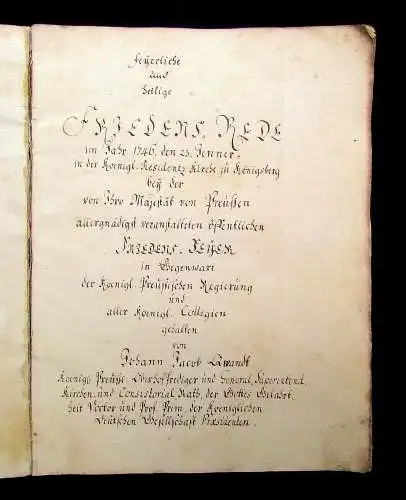 Feyerliche
und
heilige
FRIEDENS, REDE
im Jahr 1746. den 23. Jenner.
in der Koenigl. Residentz Kirche zu Königsberg
bey der
von Ihro Majestät von Preußen
allergnädigst veranstalteten öffentlichen
FRIEDENS, FEYER
in Gegenwart
der Koenigl. Preußischen Regierung
und
aller Koenigl. Collegien
gehalten
von
Johann Jacob Qwandt
Koenigl. Preuß. Oberhofprediger und General, Superintend.
Kirchen, und Consistorial Rath, der Gottes Gelahrt.
heit Doctor und Prof. Prim. der Koeniglichen
Deutschen Gesellschaft Præsidenten.